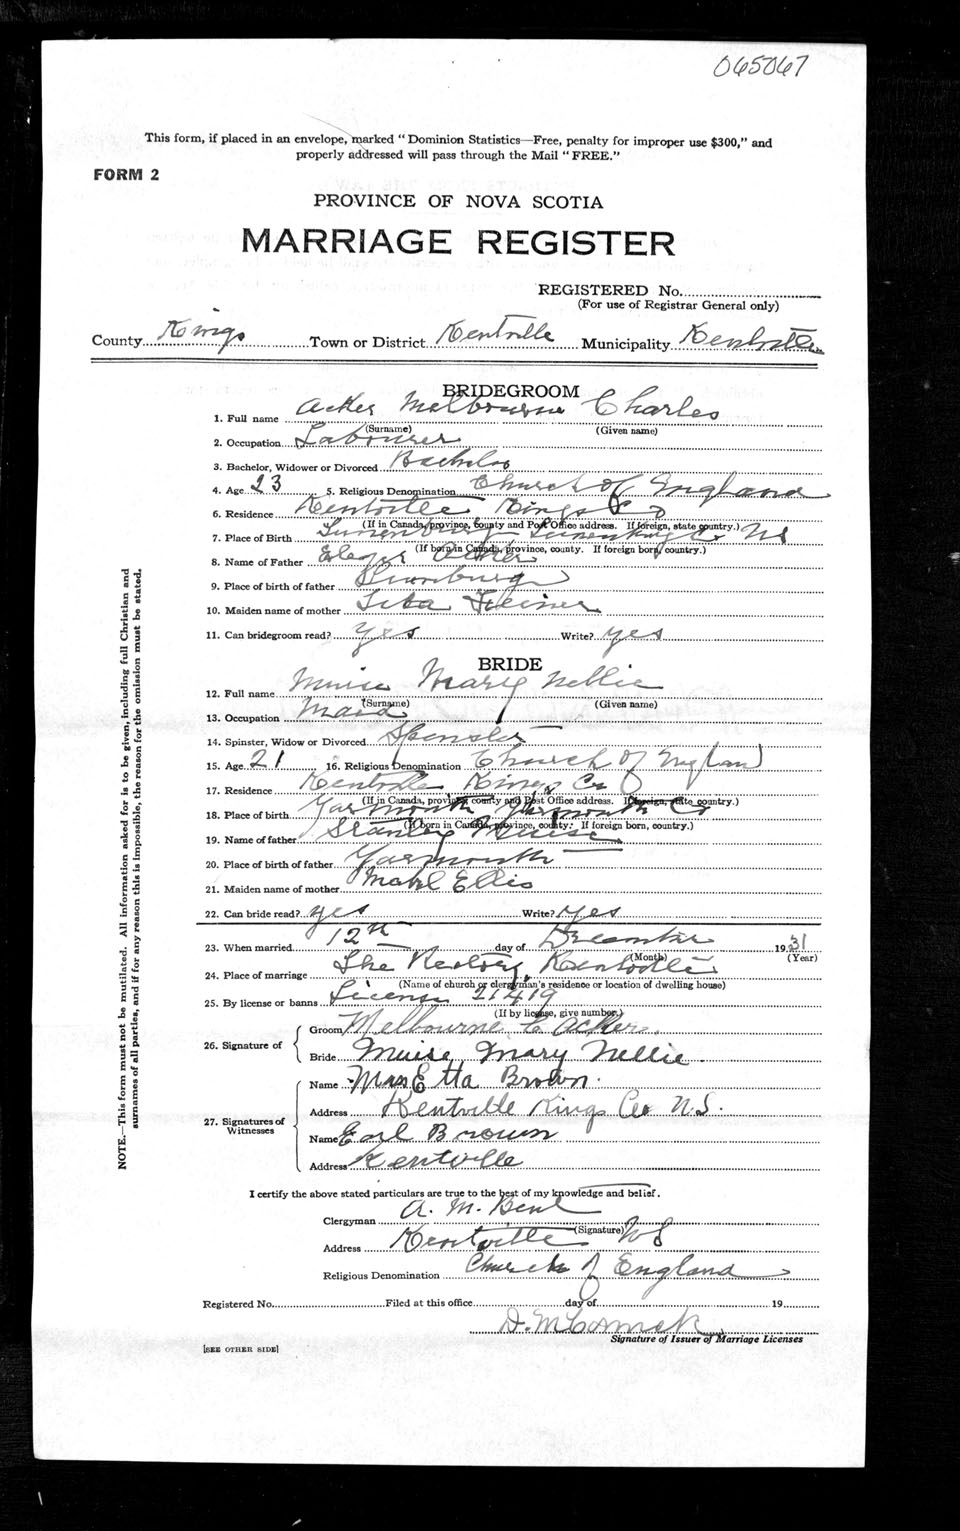 065067
This form, if placed in an envelope, marked "Dominion Statistics—Free, penalty for improper use $300," and
properly addressed will pass through the Mail "FREE."
FORM 2
PROVINCE OF NOVA SCOTIA
MARRIAGE REGISTER
REGISTERED No.
(For use of Registrar General only)
County Kings Town or District Kentville Municipality Kentville
BRIDEGROOM
1. Full name Acker Melbourne Charles
(Surname) (Given name)
2. Occupation Labourer
3. Bachelor, Widower or Divorced Bachelor
4. Age 23 5. Religious Denomination Church of England
6. Residence Kentville Kings Co
(If in Canada, province, county and Post Office address. If foreign, state country.)
7. Place of Birth Lunenburg Lunenburg Co NS
(If born in Canada, province, county. If foreign born, country.)
8. Name of Father Acker
9. Place of birth of father Lunenburg
10. Maiden name of mother
11. Can bridegroom read? Yes Write? yes
BRIDE
12. Full name Muise Mary Nellie
(Surname) (Given name)
13. Occupation Maid
14. Spinster, Widow or Divorced Spinster
15. Age 21 16. Religious Denomination Church of England
17. Residence Kentville Kings Co
(If in Canada, province, county and Post Office address. If foreign, state country.)
18. Place of birth Yarmouth Yarmouth Co
(If born in Canada, province, county. If foreign born, country.)
19. Name of father Stanley Muise
20. Place of birth of father Yarmouth
21. Maiden name of mother Mabel Ellis
22. Can bride read? yes Write? yes
23. When married 12th day of December 1931
(Month) (Year)
24. Place of marriage The Rectory, Kentville
(Name of church or clergyman's residence or location of dwelling house)
25. By license or banns License 21419
(If by license, give number.)
26. Signature of Groom Melbourne C Acker.
Bride Muise Mary Nellie.
27. Signatures of Witnesses Name Mrs Etta Brown.
Address Kentville Kings Co N.S.
Name Earl Brown
Address Kentville
I certify the above stated particulars are true to the best of my knowledge and belief.
Clergyman A. M. Bent
(Signature)
Address Kentville NS
Religious Denomination Church of England
Registered No. Filed at this office day of 19
D. McCormack
Signature of Issuer of Marriage Licenses
[SEE OTHER SIDE]
NOTE.—This form must not be mutilated. All information asked for is to be given, including full Christian and
surnames of all parties, and if for any reason this is impossible, the reason for the omission must be stated.